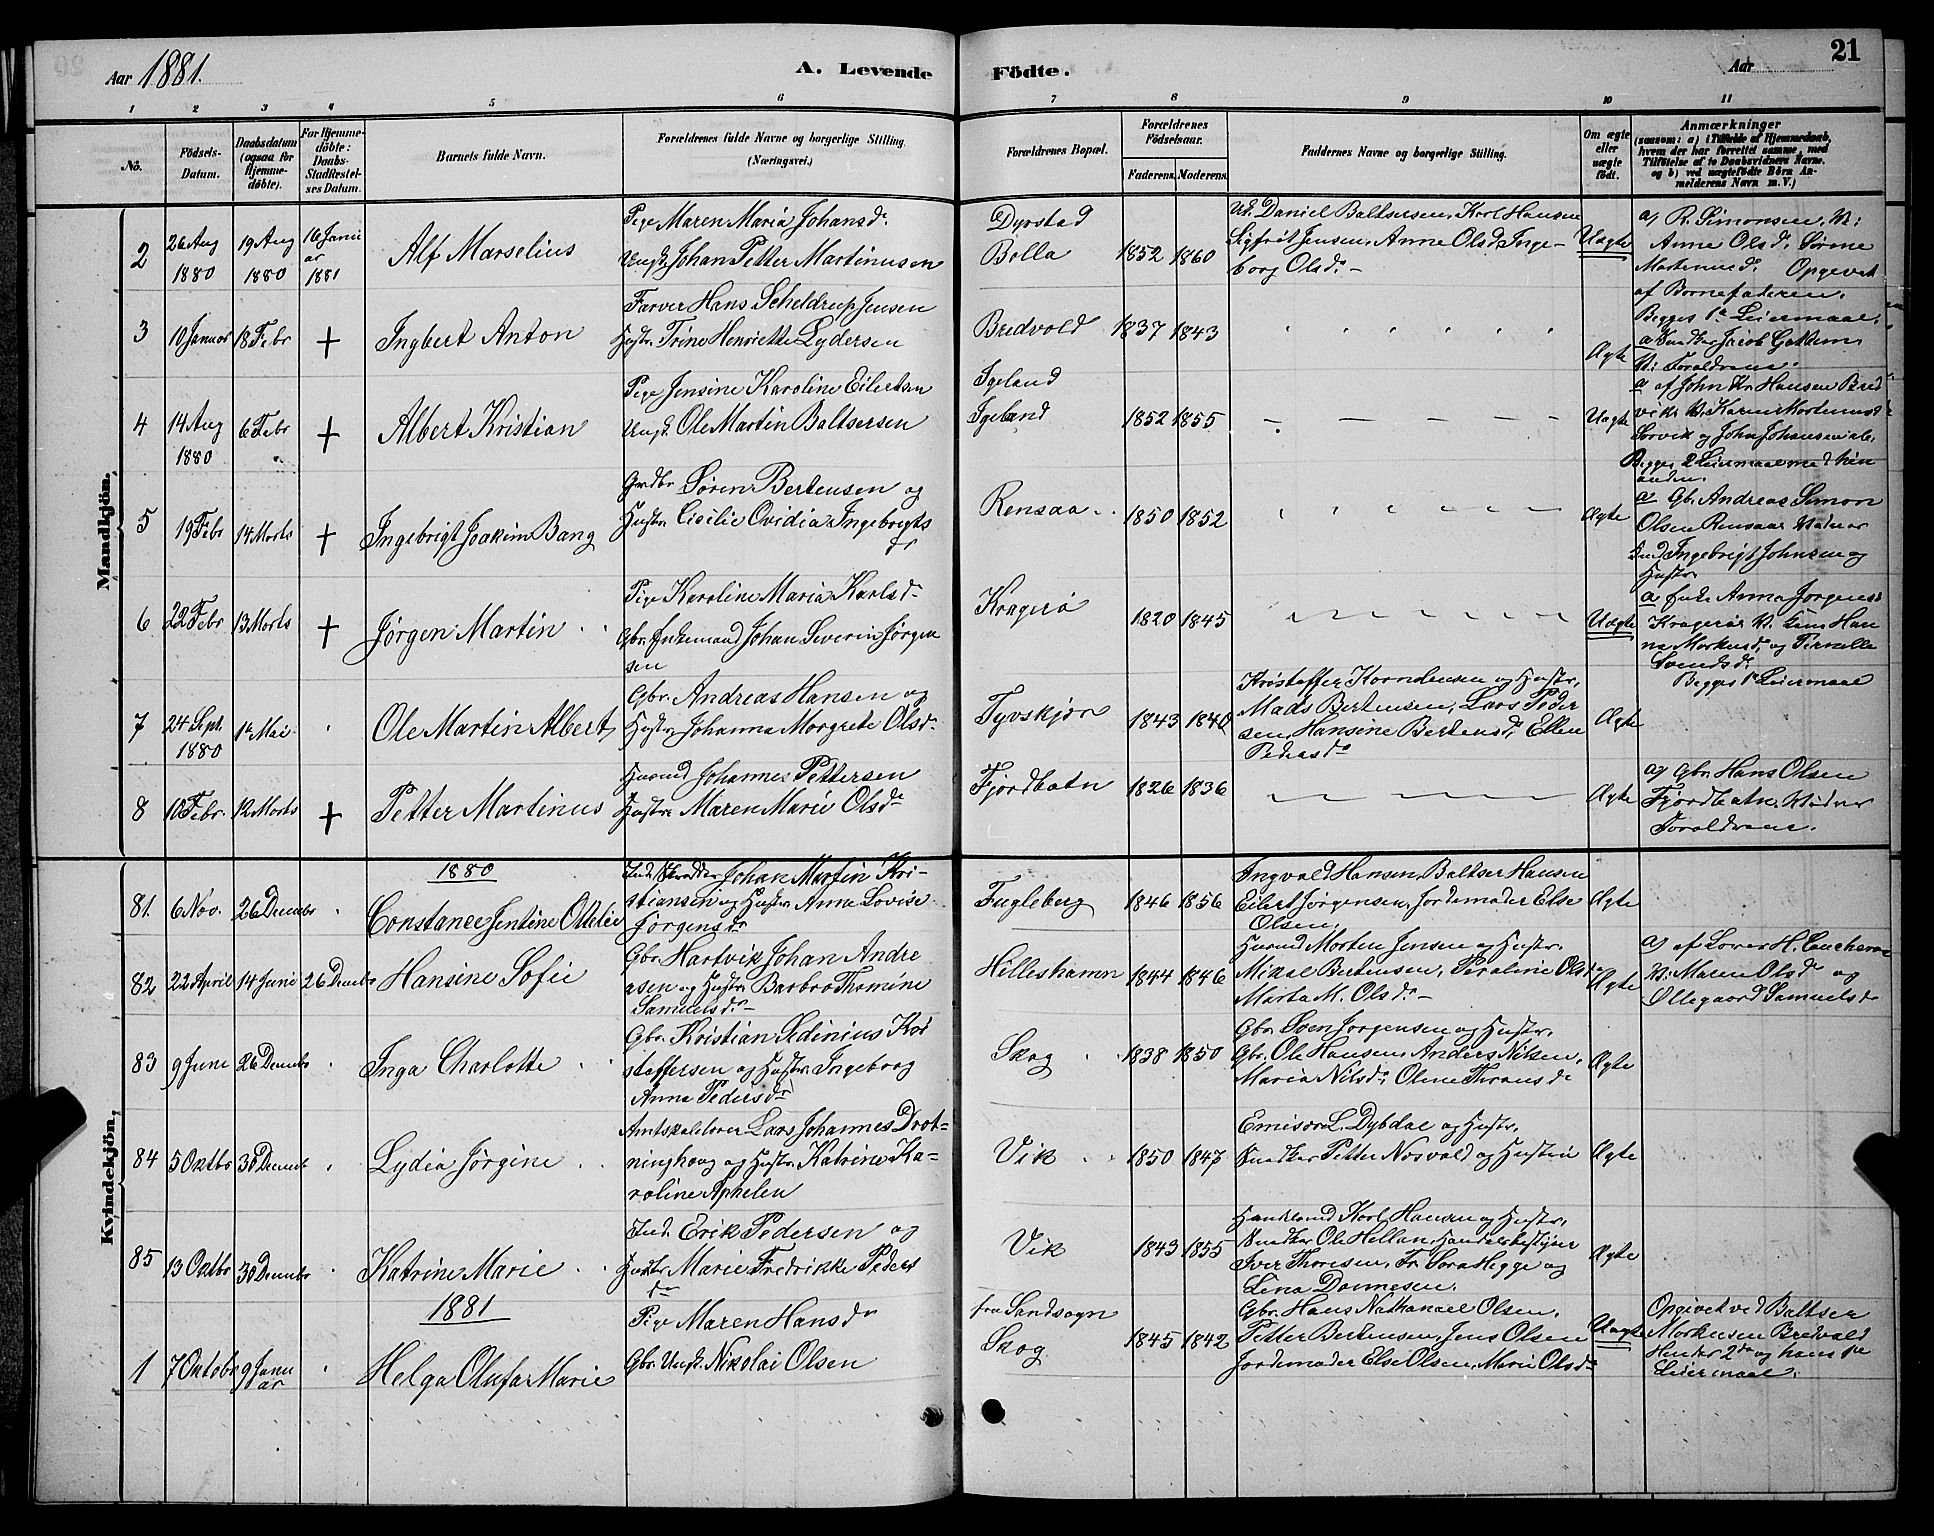 Aar 1881.
A. Levende Födte.
Aar
21
1 2 3 4 5 6 7 8 9 10 11
No.
Födsels-Datum.
Daabsdatum (ogsaa for Hjemmedöbte).
For Hjemmedöbte: Daabs-Stadfæstelses Datum.
Barnets fulde Navn.
Forældrenes fulde Navne og borgerlige Stilling. (Næringsvei.)
Forældrenes Bopæl.
Forældrenes Födselsaar.
Faderens. Moderens.
Faddernes Navne og borgerlige Stilling.
Om ægte eller uægte födt.
Anmærkninger
(saasom: a) i Tilfælde af Hjemmedaab, hvem der har forrettet samme, med Tilföielse af to Daabsvidners Navne, og b) ved uægtefödte Börn Anmelderens Navn m. V.)
Mandkjön.
2
26 Aug 1880
19 Aug 1880
16 Januar 1881
Alf Marselius
Pige Maren Maria Johansdr
Ungk. Johan Petter Martinusen
Dyrstad
Bolla
1852 1860
Uk. Daniel Baltsersen, Karl Hansen
Sigfrit Jensen, Anne Olsd. Inge-
borg Olsdr.
Uægte
a) R. Simonsen, W:
Anne Olsdr. Sørine
Martinusdr. Opgevet
af Barnefaderen.
Begges 1ste Leiermaal.
3
10 Januar
18 Febr
+
Ingbert Anton
Farver Hans Scheldrup Jensen
Hustr. Trine Henriette Lydersen
Bredvold
1837 1843
Ægte
a Snedker Jacob
W: Foraldrene.
4
14 Aug 1880
6 Febr
+
Albert Kristian
Pige Jensine Karoline Eilertsen
Ungk. Ole Martin Baltsersen
Igeland
Igeland
1852 1855
Uægte
a af John Kr Hansen Bred
vik. W. Karen Mortensd
Sørvik og John Johansen
Begges 2 Leiermaal med hin
anden.
5
19 Febr
14 Marts
+
Ingebrigt Joakim Bang
Grdbr Søren Bertensen og
Hustr. Cicilie Ovidia Ingebrigts
dr
Rensaa
1850 1852
Ægte
a Gbr. Andreas Simon
Olsen Rensaa. Widner
Ind Ingebrigt Johnsen og
Hustr.
6
22 Febr
13 Marts
+
Jørgen Martin
Pige Karoline Maria Karlsdr
Gbr. Enkemand Johan Severin Jørgen
sen
Kragerø
1820 1845
Uægte
a Enke Anna Jørgensd
Kragerø W. Han
na Markusd. og Pernelle
Svendsdr.
Begges 1ste Leiermaal
7
24 Sept. 1880
1ste Mai
Ole Martin Albert
Gbr. Andreas Hansen og
Hustr. Johanna Margrete Olsdr
Tyvskjør
1843 1840
Kristoffer Korneliusen og Hustr,
Mads Bertensen, Lars Peder
sen, Hansine Bertensdr, Ellen
Pedersdr
Ægte
8
10 Febr.
12 Marts
+
Petter Martinus
Husmd Johannes Pettersen
Hustr. Maren Marie Olsdr
Fjordbotn
1826 1836
Ægte
a) Gbr. Hans Olsen
Fjordbotn. Widner
Foraldrene.
Kvindekjön.
1880
81.
6 Nov.
26 Decmbr
Constance Jentine Ottelie
Ind. Skrædder Johan Martin Kri-
stiansen og Hustr. Anna Lovise
Jørgensdr
Fugleberg
1846 1856
Ingvald Hansen, Baltser Hansen
Eilert Jørgensen, Jordemoder Else
Olsen
Ægte
82
22 April
14 Juni
26 Decmbr
Hansine Sofie
Gbr. Hartvik Johan Andre
asen og Hustr. Barbro Thomine
Samuelsdr
Hilleshamn
1844 1846
Husmd Morten Jensen og Hustr.
Mikal Bertensen, Peroline Olsdr
Marta M. Olsdr.
Ægte
a) af Lærer H.
W: Maren Olsdr og
Ollegaard Samuelsdr
83
9 June
26 Decmbr
Inga Charlotte
Gbr. Kristian Sedinius Kri
stoffersen og Hustr. Ingeborg
Anna Pedersdr
Skog
1838 1850
Gbr. Sven Jørgensen og Hustr.
Gbr. Ole Hansen, Anders Nilsen,
Maria Nilsdr, Oline Thransdr
Ægte
84
5 Oktbr
30 Decmbr
Lydia Jørgine
Amtskolelærer Lars Johannes Drot-
ninghaug og Hustr. Katrine Ka-
roline Aphelen
Vik
1850 1847
Emisær L. Dybdal og Hustr.
Snedker Petter Nøsvold og Hustru
Ægte
85
13 Oktbr
30 Decmbr
Katrine Marie
Ind. Erik Pedersen og
Hustr Marie Fredrikke Peders
dr
Vik
1843 1855
Handelsmd Karl Hansen og Hustr,
Snedker Ole Helland, Handelsbestyrer
Iver Thoresen, Fr. Sara Hegge og
Lina Dønnesen.
Ægte
1881
1
7 Oktobr
9 Januar
Helga Olufa Marie
Pige Maren Hansdr
Gbr. Ungk. Nikolai Olsen
fra Sandsogn
Skog
1845 1842
Gbr. Hans Nathanael Olsen,
Petter Bertensen, Jens Olsen
Jordemoder Else Olsen, Marie Olsdr
Uægte
Opgivet ved Baltser
Markusen Bredvold
Hendes 2det og hans 1ste
Leiermaal.